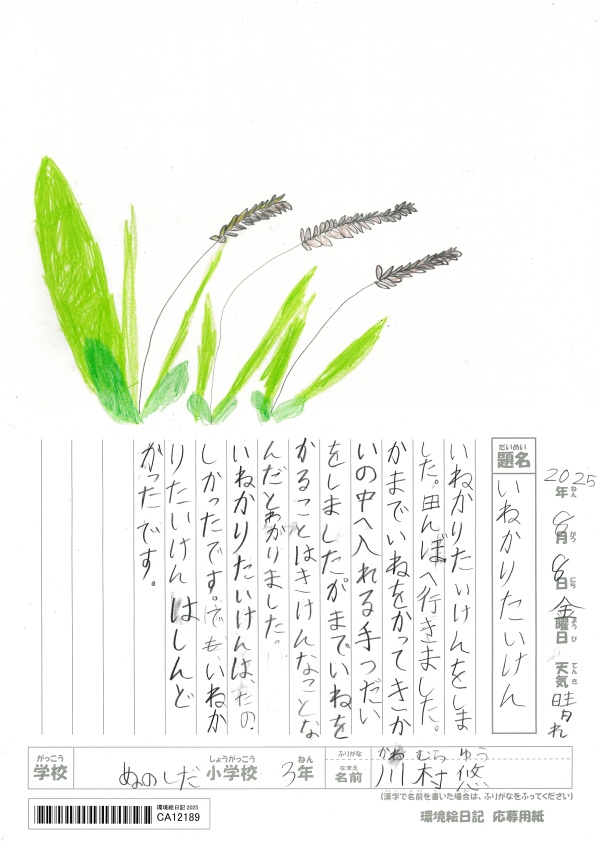 題名
だいめい
いねかりたいけん
2025年 8月 8日 金曜日 天気 晴れ
ねん がつ にち ようび てんき
いねかりたいけんをしま
した。田んぼへ行きました。
かまでいねをかってきか
いの中へ入れる手つだい
をしましたがまでいねを
かることはきけんなことな
んだとわかりました。
いねかりたいけんは、たの
しかったです。でもいねか
りたいけん はしんど
かったです。
がっこう
学校
ぬのしだ
しょうがっこう
小学校
3年
ねん
ふりがな
なまえ
名前
かわ むら ゆう
川村 悠
(漢字で名前を書いた場合は、ふりがなをふってください)
環境絵日記 2025
CA12189
環境絵日記 応募用紙